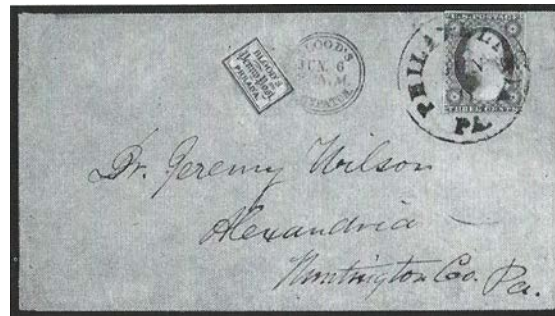 BLOOD'S
Penny Post
PHILADA.
BLOOD'S
JUN. 6
A.M.
DISPATCH
U.S. POSTAGE
THREE CENTS
PHILADELPHIA
PA.
Dr. Jeremy Wilson
Alexandria
Huntington Co. Pa.